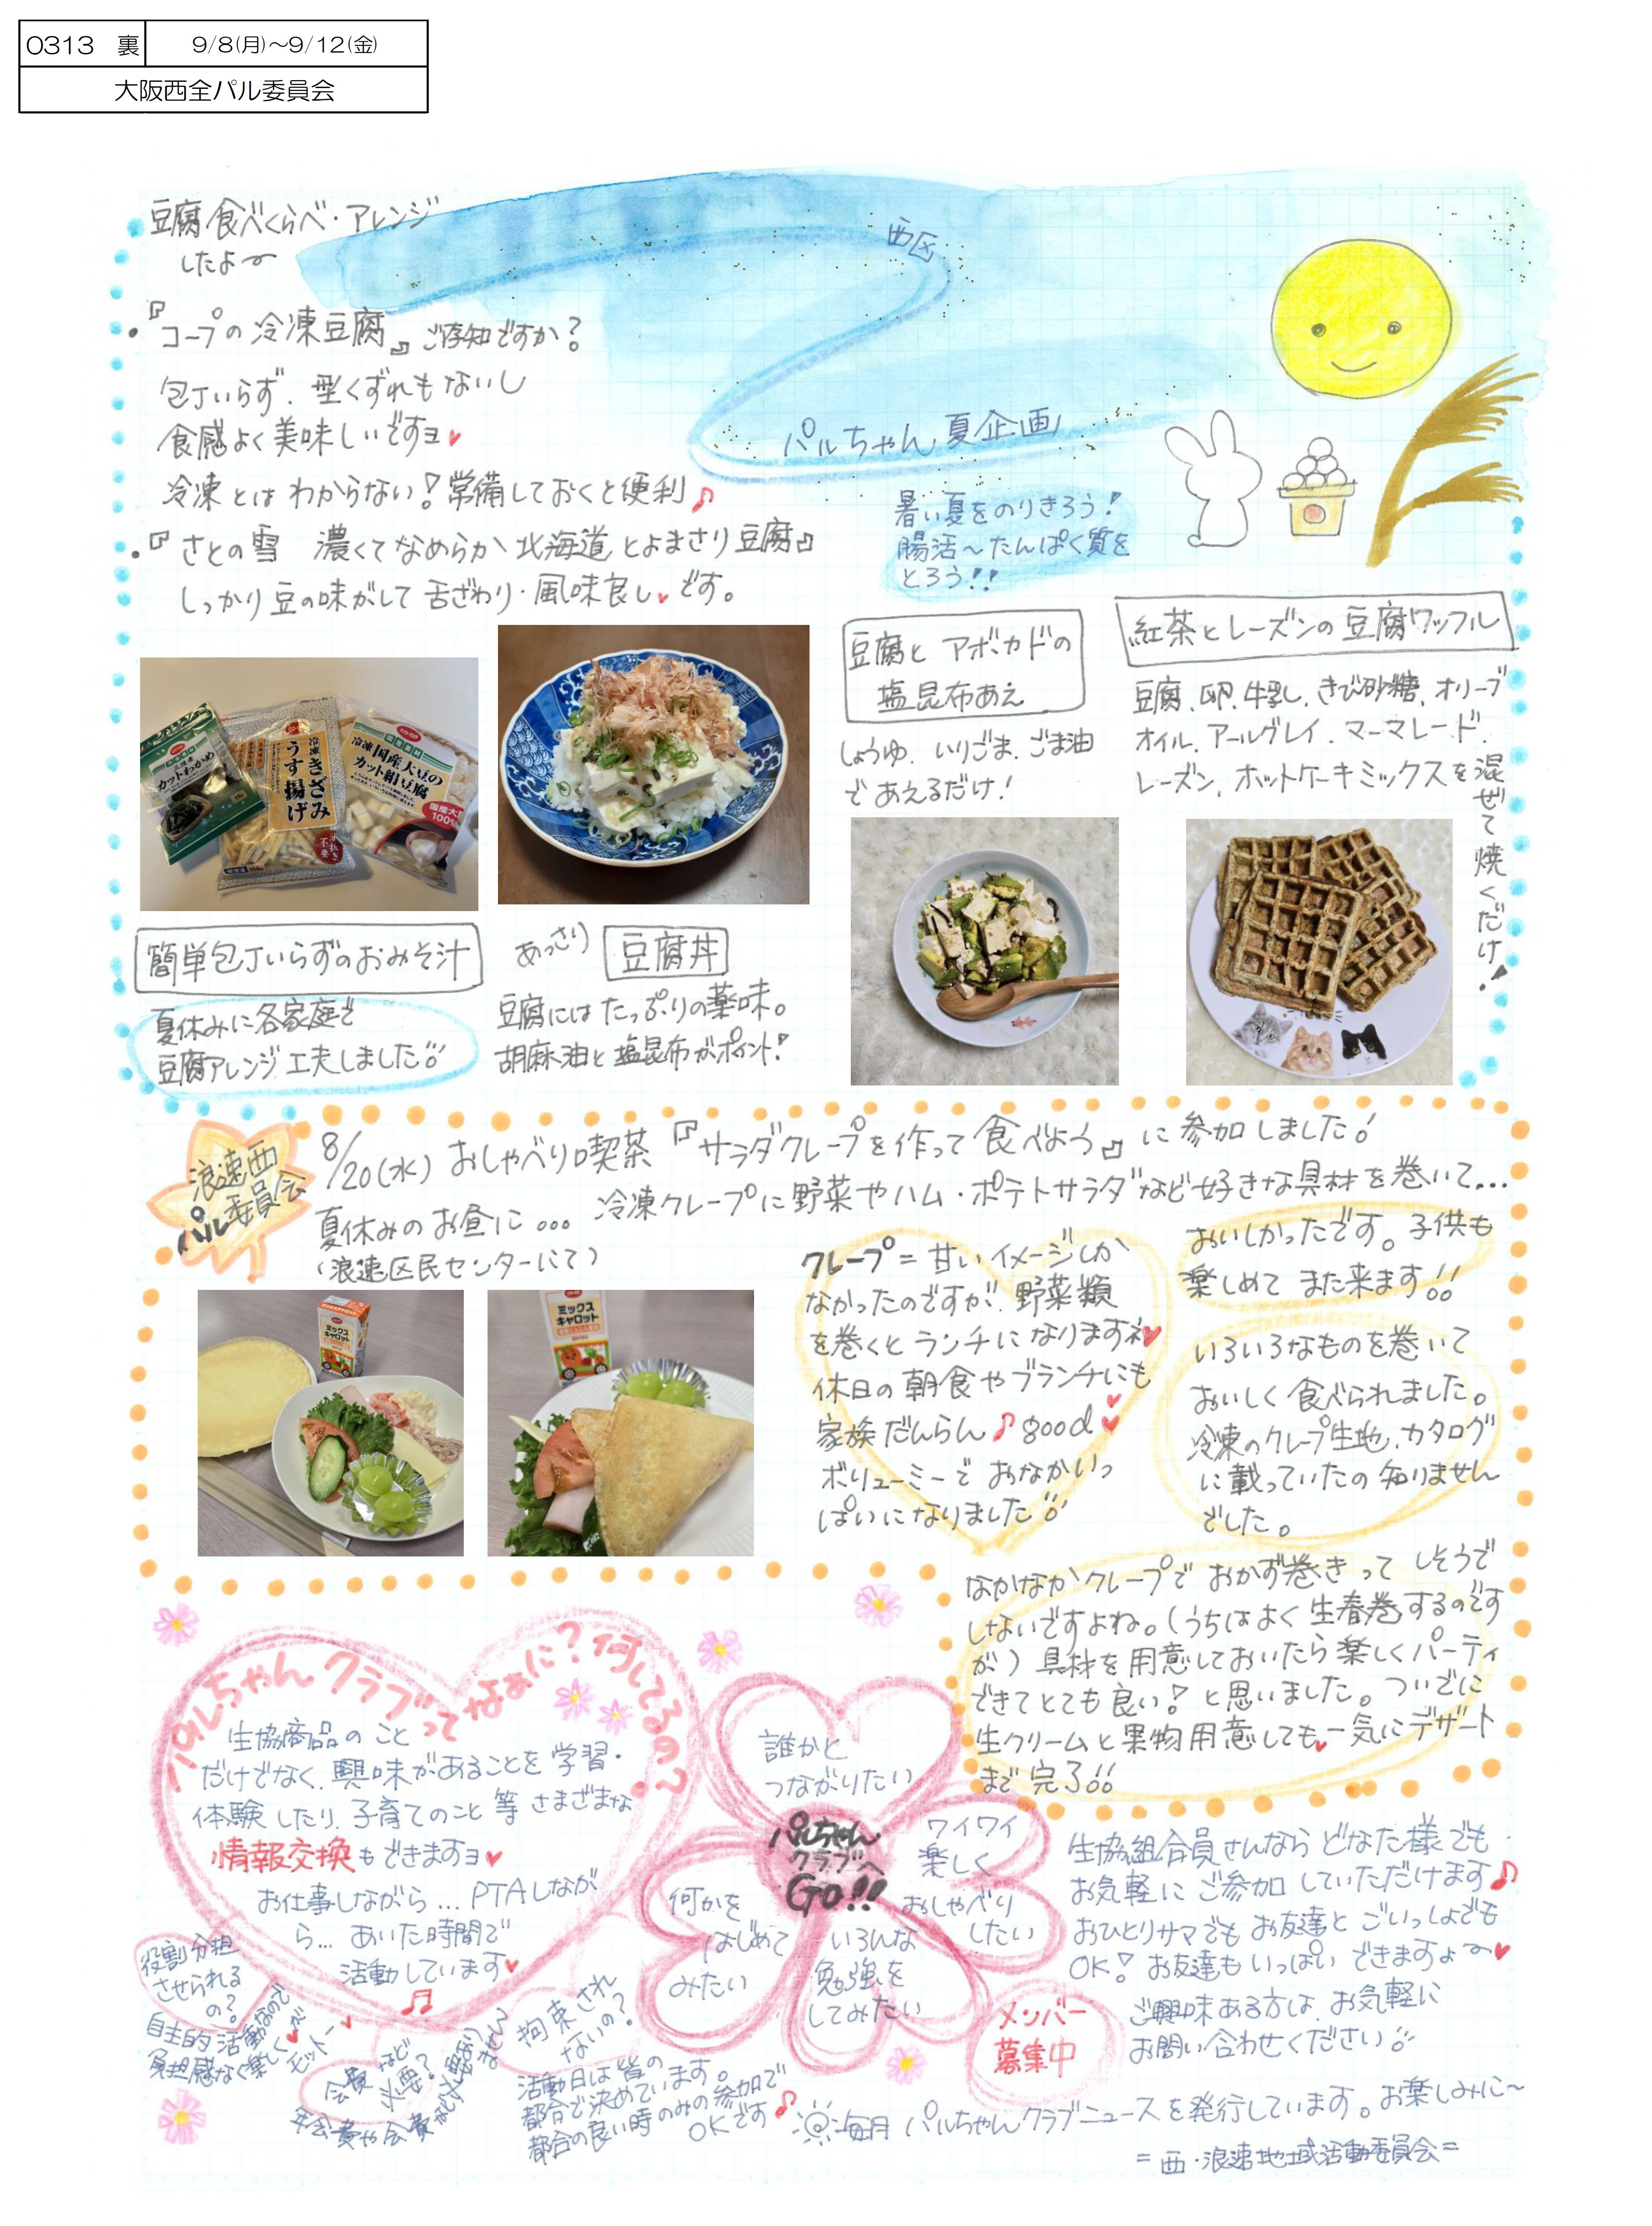 0313 裏
9/8(月)~9/12(金)
大阪西全パル委員会
豆腐食べくらべ・アレンジ
したよ〜
西区
パルちゃん夏企画
暑い夏をのりきろう!
腸活〜たんぱく質を
とろう!!
・『コープの冷凍豆腐』ご存知ですか?
包丁いらず、型くずれもないし
食感よく美味しいですヨ♥
冷凍とはわからない!常備しておくと便利♪
・『さとの雪 濃くてなめらか 北海道とよまさり豆腐』
しっかり豆の味がして舌ざわり・風味良し♥です。
カットわかめ
冷凍きざみ
うす揚げ
油抜き
不要
冷凍国産大豆の
カット絹豆腐
国産大豆
100%
簡単包丁いらずのおみそ汁
夏休みに各家庭で
豆腐アレンジ工夫しました!!
あっさり 豆腐丼
豆腐にはたっぷりの薬味。
胡麻油と塩昆布がポイント!
豆腐とアボカドの
塩昆布あえ
しょうゆ、いりごま、ごま油
であえるだけ!
紅茶とレーズンの豆腐ワッフル
豆腐、卵、牛乳、きび砂糖、オリーブ
オイル、アールグレイ、マーマレード、
レーズン、ホットケーキミックスを混ぜて焼くだけ!
浪速西
パル委員会
8/20(水) おしゃべり喫茶『サラダクレープを作って食べよう』に参加しました!
夏休みのお昼に。。。冷凍クレープに野菜やハム・ポテトサラダなど好きな具材を巻いて...
(浪速区民センターにて)
ミックス
キャロット
ミックス
キャロット
クレープ=甘いイメージしか
なかったのですが、野菜類
を巻くとランチになりますネ♥
休日の朝食やブランチにも♥
家族だんらん♪good♥
ボリューミーでおなかいっ
ぱいになりました!!
おいしかったです。子供も
楽しめてまた来ます!!
いろいろなものを巻いて
おいしく食べられました。
冷凍のクレープ生地、カタログ
に載っていたの知りません
でした。
なかなかクレープでおかず巻きってしそうで
しないですよね。(うちはよく生春巻するのです
が)具材を用意しておいたら楽しくパーティ
できてとても良い!と思いました。ついでに
生クリームと果物用意しても♥一気にデザート
まで完了!!
パルちゃんクラブってなぁに?何してるの?
生協商品のこと
だけでなく、興味があることを学習・
体験したり、子育てのこと等さまざまな
情報交換もできますヨ♥
お仕事しながら...PTAしなが
ら... あいた時間で
活動しています♥
役割分担
させられる
の?
自主的活動なので
負担感なく楽しくがモットー♥
会費など
必要?
年会費や会費などは必要ありません
拘束され
ないの?
活動日は皆の
都合で決めています。
都合の良い時のみの参加で
OKです♪
パルちゃん
クラブへ
GO!!
誰かと
つながりたい
ワイワイ
楽しく
おしゃべり
したい
いろんな
勉強を
してみたい
何かを
はじめて
みたい
メンバー
募集中
生協組合員さんならどなた様でも
お気軽にご参加していただけます♪
おひとりサマでもお友達とごいっしょでも
OK!お友達もいっぱいできますよ〜♥
ご興味ある方は、お気軽に
お問い合わせください!!
毎月パルちゃんクラブニュースを発行しています。お楽しみに〜
=西・浪速地域活動委員会=